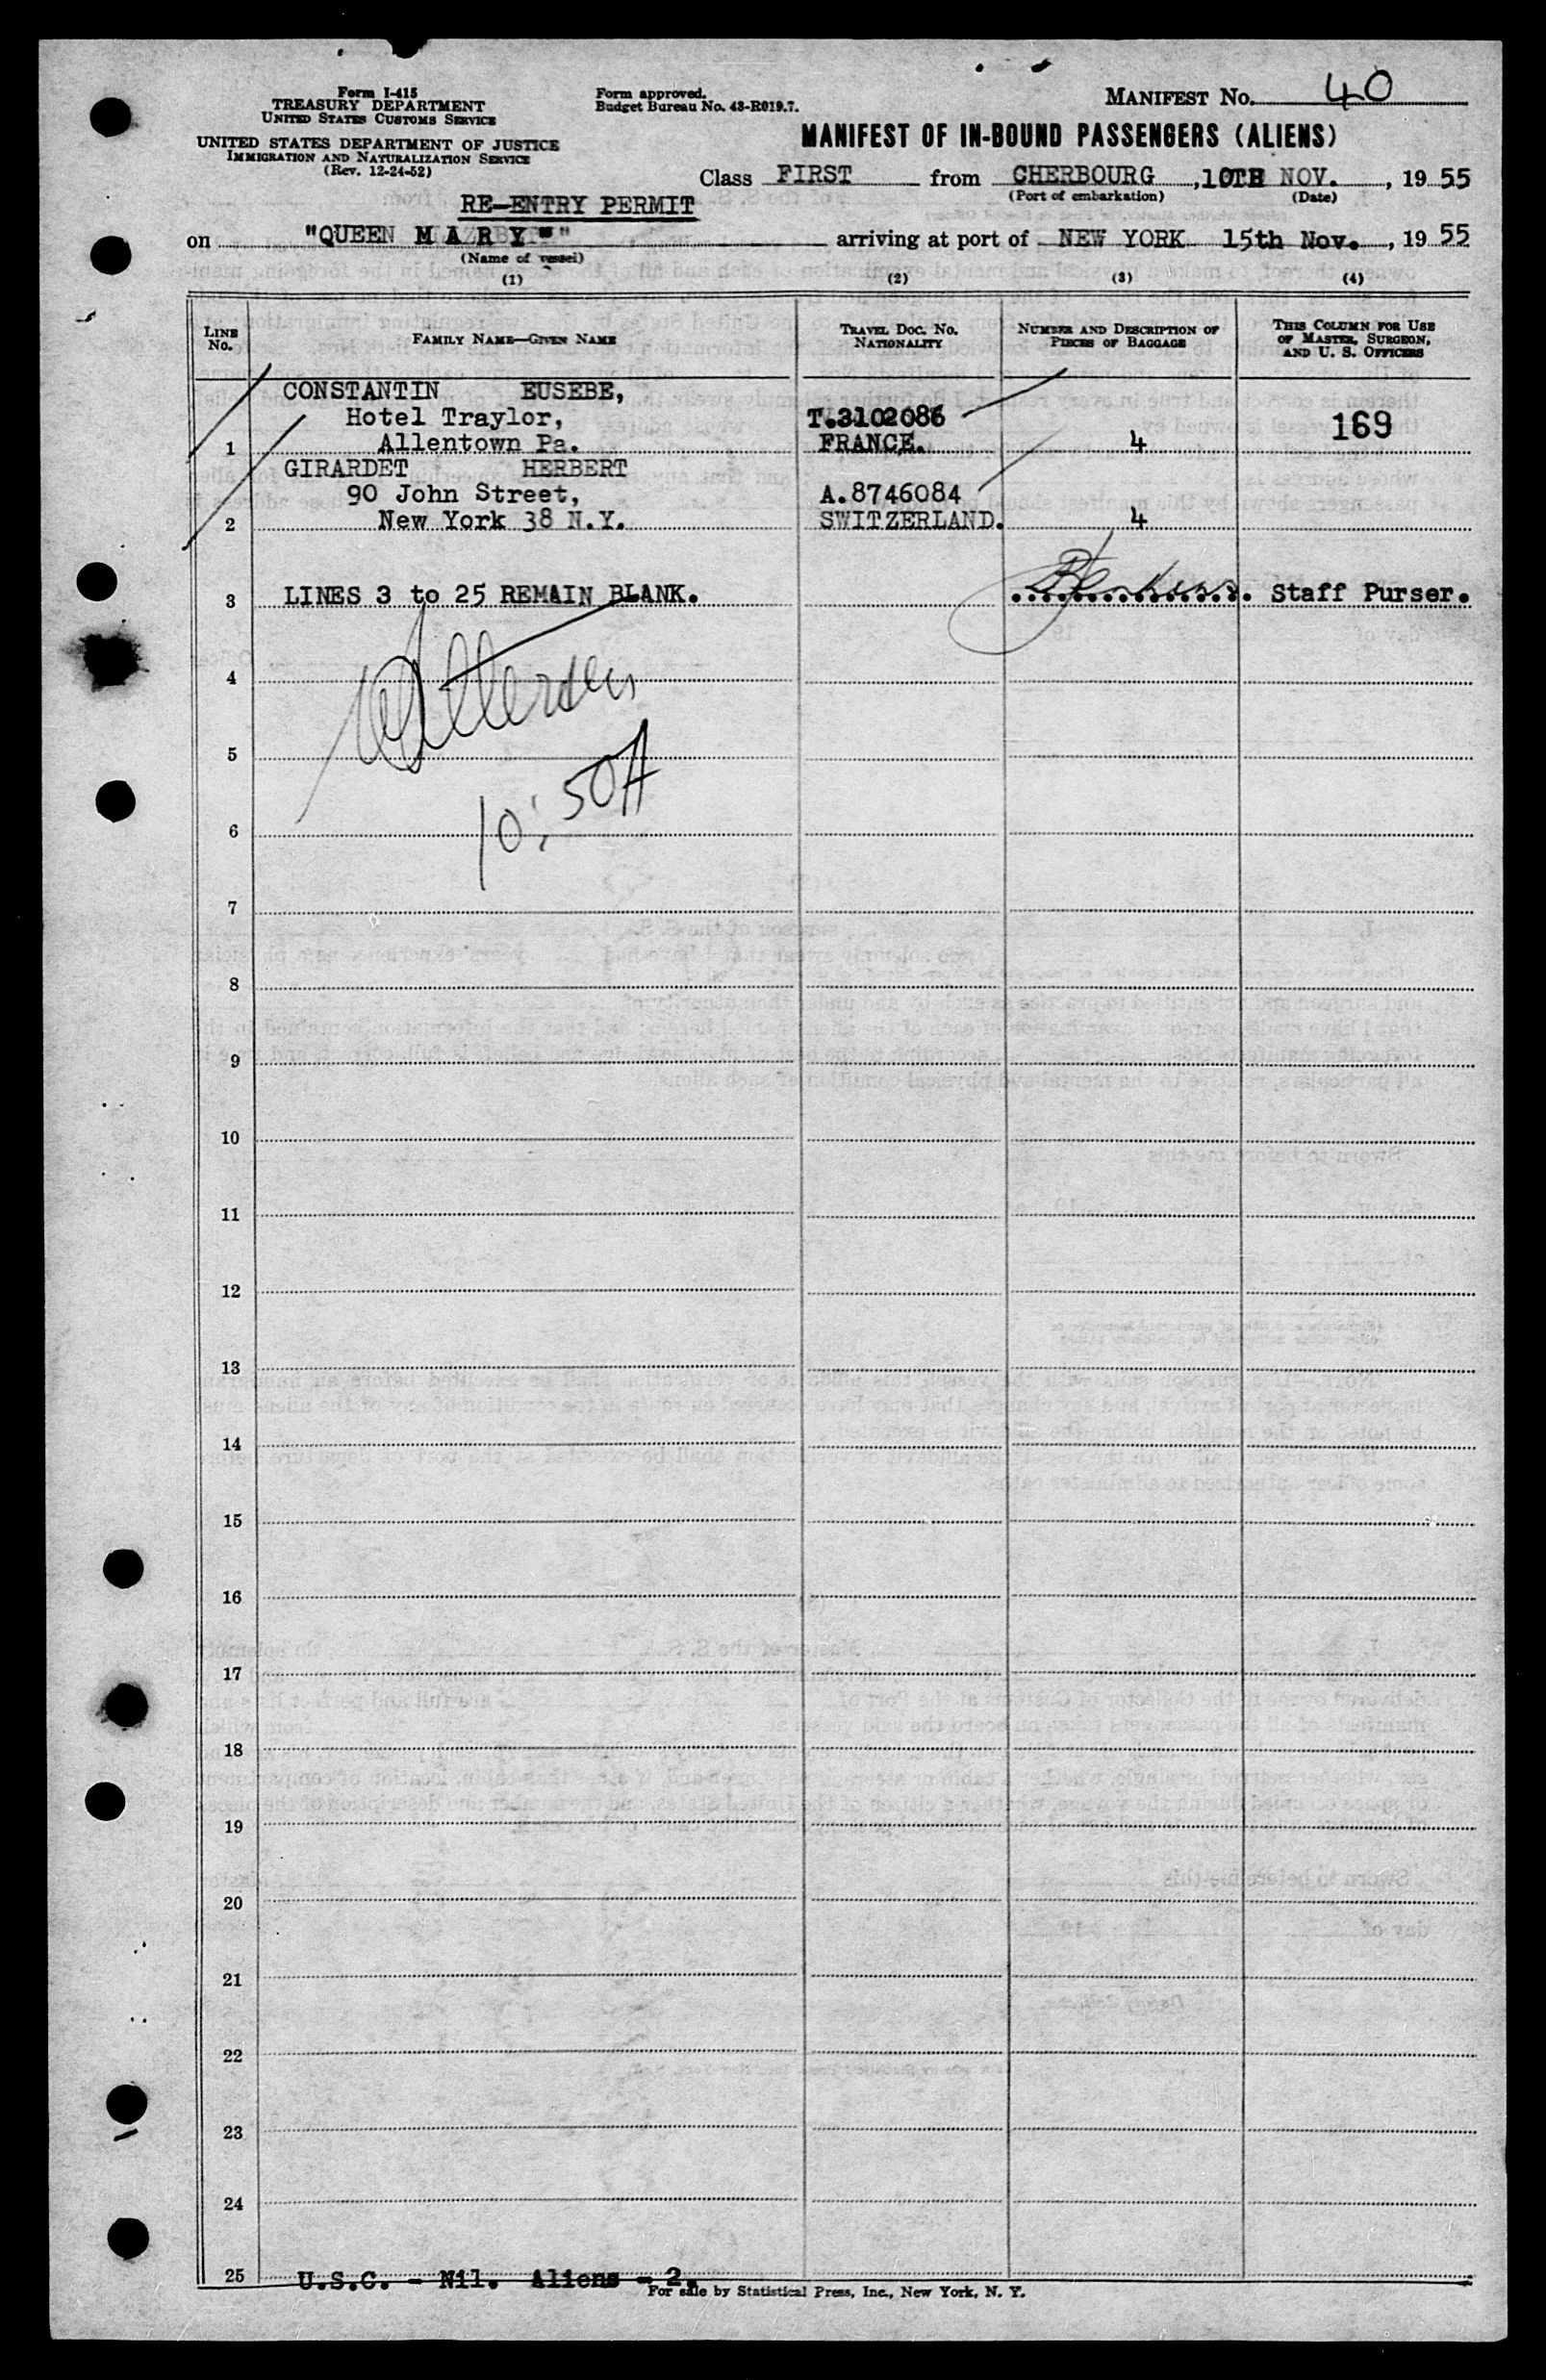 Form I-415
TREASURY DEPARTMENT
UNITED STATES CUSTOMS SERVICE
UNITED STATES DEPARTMENT OF JUSTICE
IMMIGRATION AND NATURALIZATION SERVICE
(Rev. 12-24-52)
Form approved.
Budget Bureau No. 43-R019.7.
MANIFEST NO. 40
MANIFEST OF IN-BOUND PASSENGERS (ALIENS)
Class FIRST from CHERBOURG, 10TH NOV., 19 55
(Port of embarkation) (Date)
RE-ENTRY PERMIT
on "QUEEN MARY" arriving at port of NEW YORK 15th Nov., 19 55
(Name of vessel)
(1) (2) (3) (4)
LINE NO. FAMILY NAME—GIVEN NAME TRAVEL DOC. NO. NATIONALITY NUMBER AND DESCRIPTION OF PIECES OF BAGGAGE THIS COLUMN FOR USE OF MASTER, SURGEON, AND U. S. OFFICERS
CONSTANTIN EUSEBE,
Hotel Traylor, T.3102086 169
1 Allentown Pa. FRANCE. 4
GIRARDET HERBERT
90 John Street, A.8746084
2 New York 38 N.Y. SWITZERLAND. 4
3 LINES 3 to 25 REMAIN BLANK. Staff Purser.
4
5
10:50A
6
7
8
9
10
11
12
13
14
15
16
17
18
19
20
21
22
23
24
25 U.S.C. - Nil. Aliens - 2.
For sale by Statistical Press, Inc., New York, N. Y.